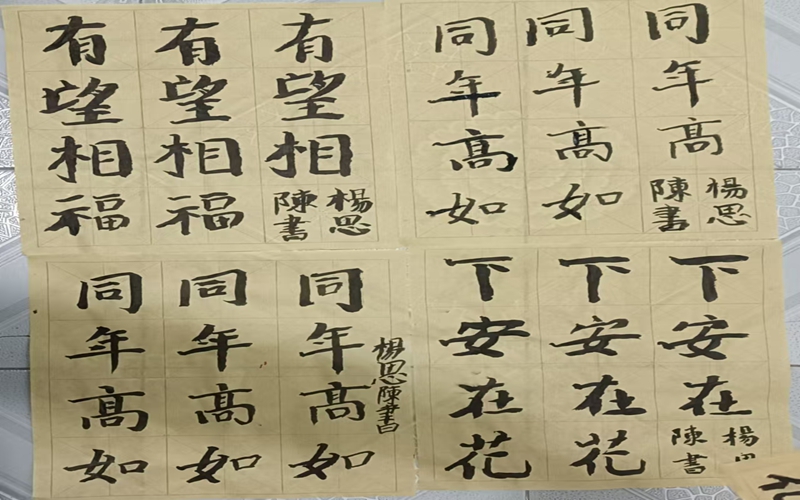 有望相
楊思
陳書
有望相福
有望相福
同年髙
楊思
陳書
同年髙如
同年髙如
楊思陳書
同年髙如
同年髙如
同年髙如
下安在
楊
陳書
下安在花
下安在花